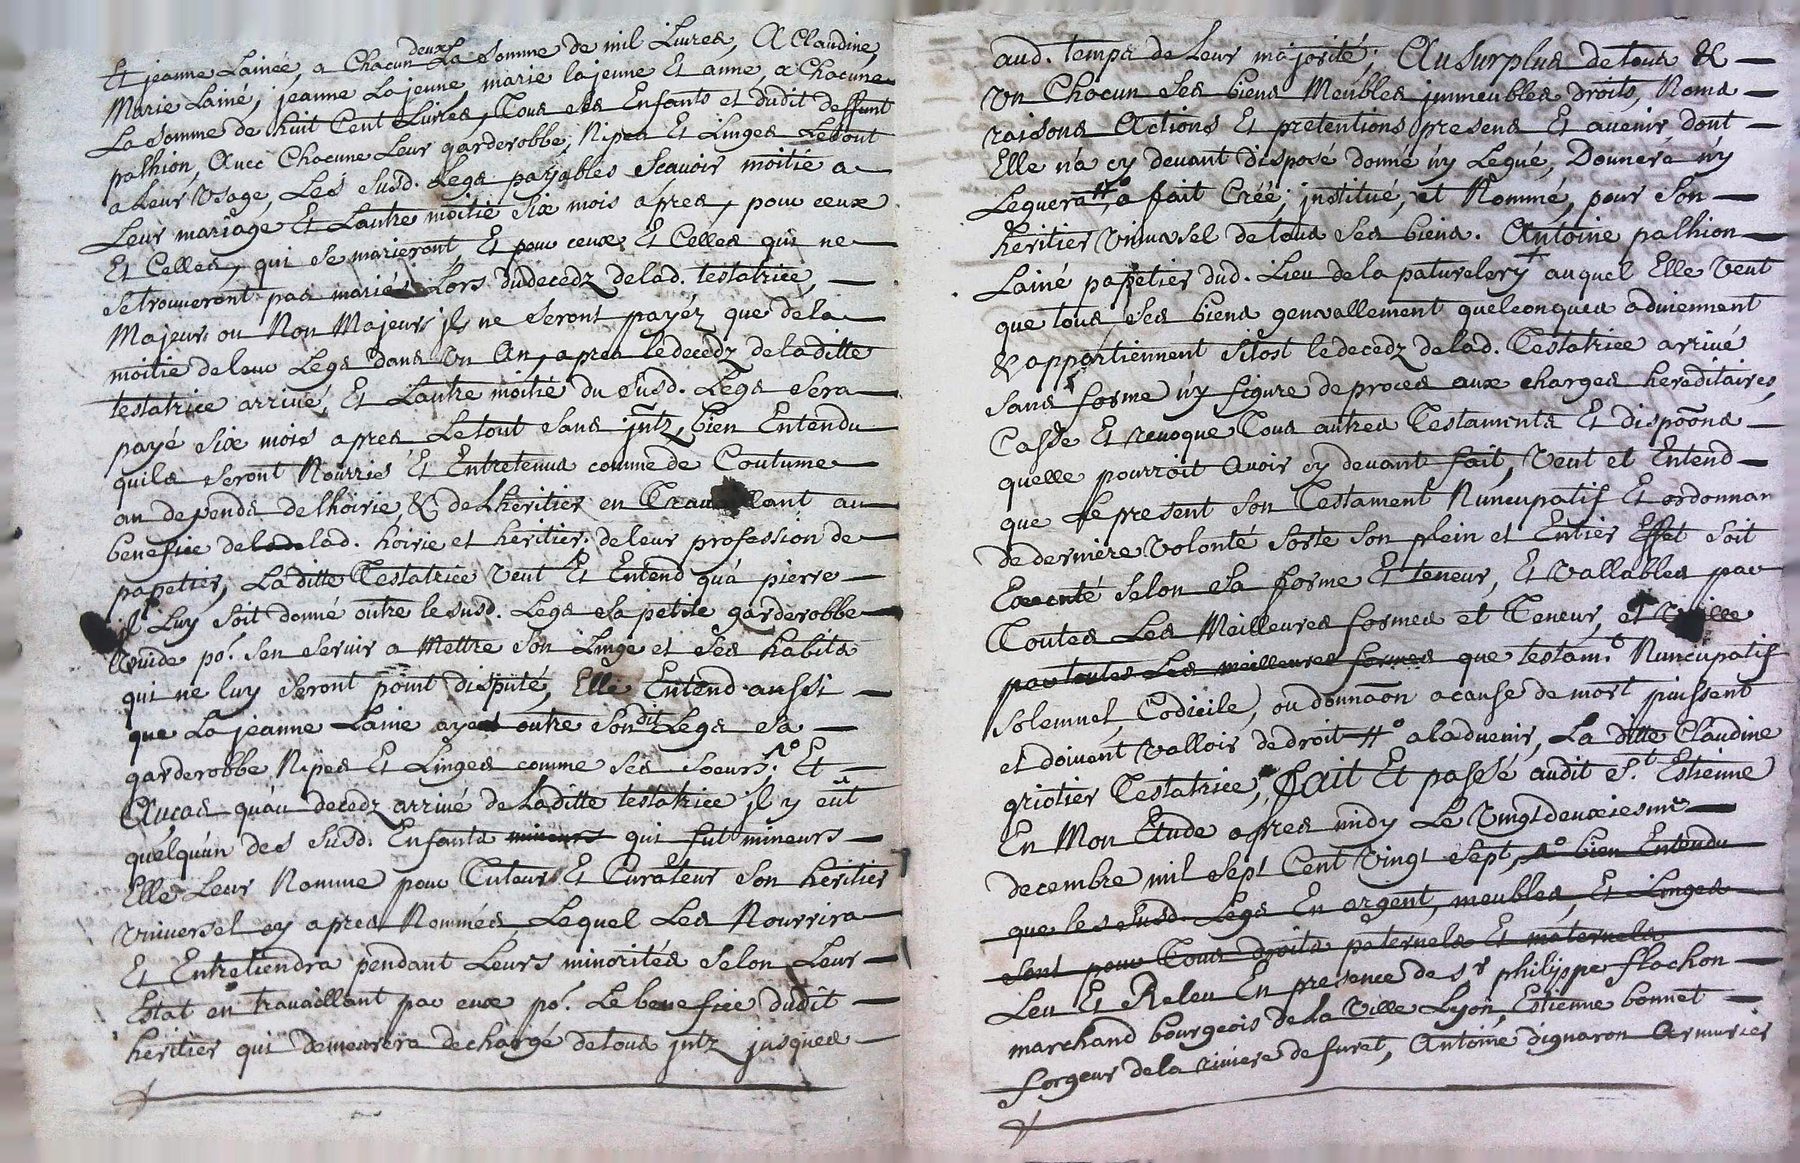 Et jeanne Lainée, a Chacun deux La Somme de mil Livres, A Claudine,
Marie Lainé, jeanne Lajeune, marie lajeune Et anne, a Chacune
La Somme de huit Cent Livres, Tous ses Enfants et dudit deffunt
palhion, Avec Chacune Leur garderobbe, Nipes Et Linges Letout
a Leur Usage, Les susd. Legs payables Scavoir moitié a
Leur mariage Et Lautre moitié Six mois apres, pour ceux
Et Celles, qui Se marieront, Et pour ceux Et Celles qui ne
Setrouveront pas mariés Lors dudecedz delad. testatrice,
Majeurs ou Non Majeurs jls ne Seront payéz que dela
moitie deleur Legs dans Un An, apres ledecedz deladitte
testatrice arrivé, Et Lautre moitié du Susd. Legs Sera
payé Six mois apres Letout Sans jntz, bien Entendu
quils Seront Nourris Et Entretenus comme de Coutume
au depends delhoirie & de Lhéritier en Travaillant au
benefice delad. hoirie et héritier. deleur profession de
papetier, Laditte Testatrice Veut Et Entend quà pierre
jl Luy Soit donné outre lesusd. Legs Sa petite garderobbe
Vuide po.r Sen Servir a Mettre Son Linge et Ses habits
qui ne luy Seront point disputé, Elle Entend aussi
que La jeanne Laine aye outre Sondit Legs Sa
garderobbe Nipes Et Linges comme Ses Soeurs. Et
Aucas quàu decedz arrivé de Laditte testatrice jl y eût
quelquùn des Susd. Enfants mineurs qui fut mineurs
Elle Leur Nomme pour Tuteur Et Curateur Son heritier
Universel cy apres Nommés, Lequel Les Nourrira
Et Entretiendra pendant Leurs minorités Selon Leur
Estat en travaillant par eux po.r Le benefice dudit
héritier qui demeurera dechargé detous jntz jusques
aud. temps de Leur majorité; Au Surplus detous &
Un Chacun Ses biens Meubles jmmeubles droits, Noms
raisons Actions Et pretentions presens Et avenir dont
Elle n'a cy devant disposé donné n'y Legué, Donnera n'y
Leguera, a fait Créé, jnstitué, et Nommé, pour Son
héritier Universel detous Ses biens. Antoine palhion
Lainé papetier dud. Lieu dela paturelery auquel Elle Veut
que tous Ses biens generallement quelconques adviennent
& appartiennent Sitost ledecedz delad. Testatrice arrivé
Sans forme n'y figure deproces aux charges hereditaires,
Casse Et revoque Tous autres Testaments Et disponns
quelle pourroit Avoir cy devant fait, Veut et Entend
que Le present Son Testament Nuncupatif Et ordonnan
dederniere Volonté Sorte Son plein et Entier Effet Soit
Executé Selon Sa forme Et teneur, Et Vallables par
Toutes Les Meilleures formes et Teneur, et
par toutes Les meilleures formes que testam.t Nuncupatif
Solemnel, Codicile, ou donnaon a cause de mort puissent
et doivent Vallois dedroit alavenir, La ditte Claudine
griotier Testatrice, Fait Et passé audit S.t Estienne
En Mon Etude apres midy Le Vingtdeuxiesme
decembre mil Sept Cent Vingt Sept, bien Entendu
que les Susd. Legs En argent, meubles, Et Linges
Sont pour Tous droits paternels Et maternels
Leu Et Releu En presence de Sr philippe flachon
marchand bourgeois dela Ville Lyon, Estienne bonnet
forgeur dela riviere defuret, Antoine dignaron Armurier